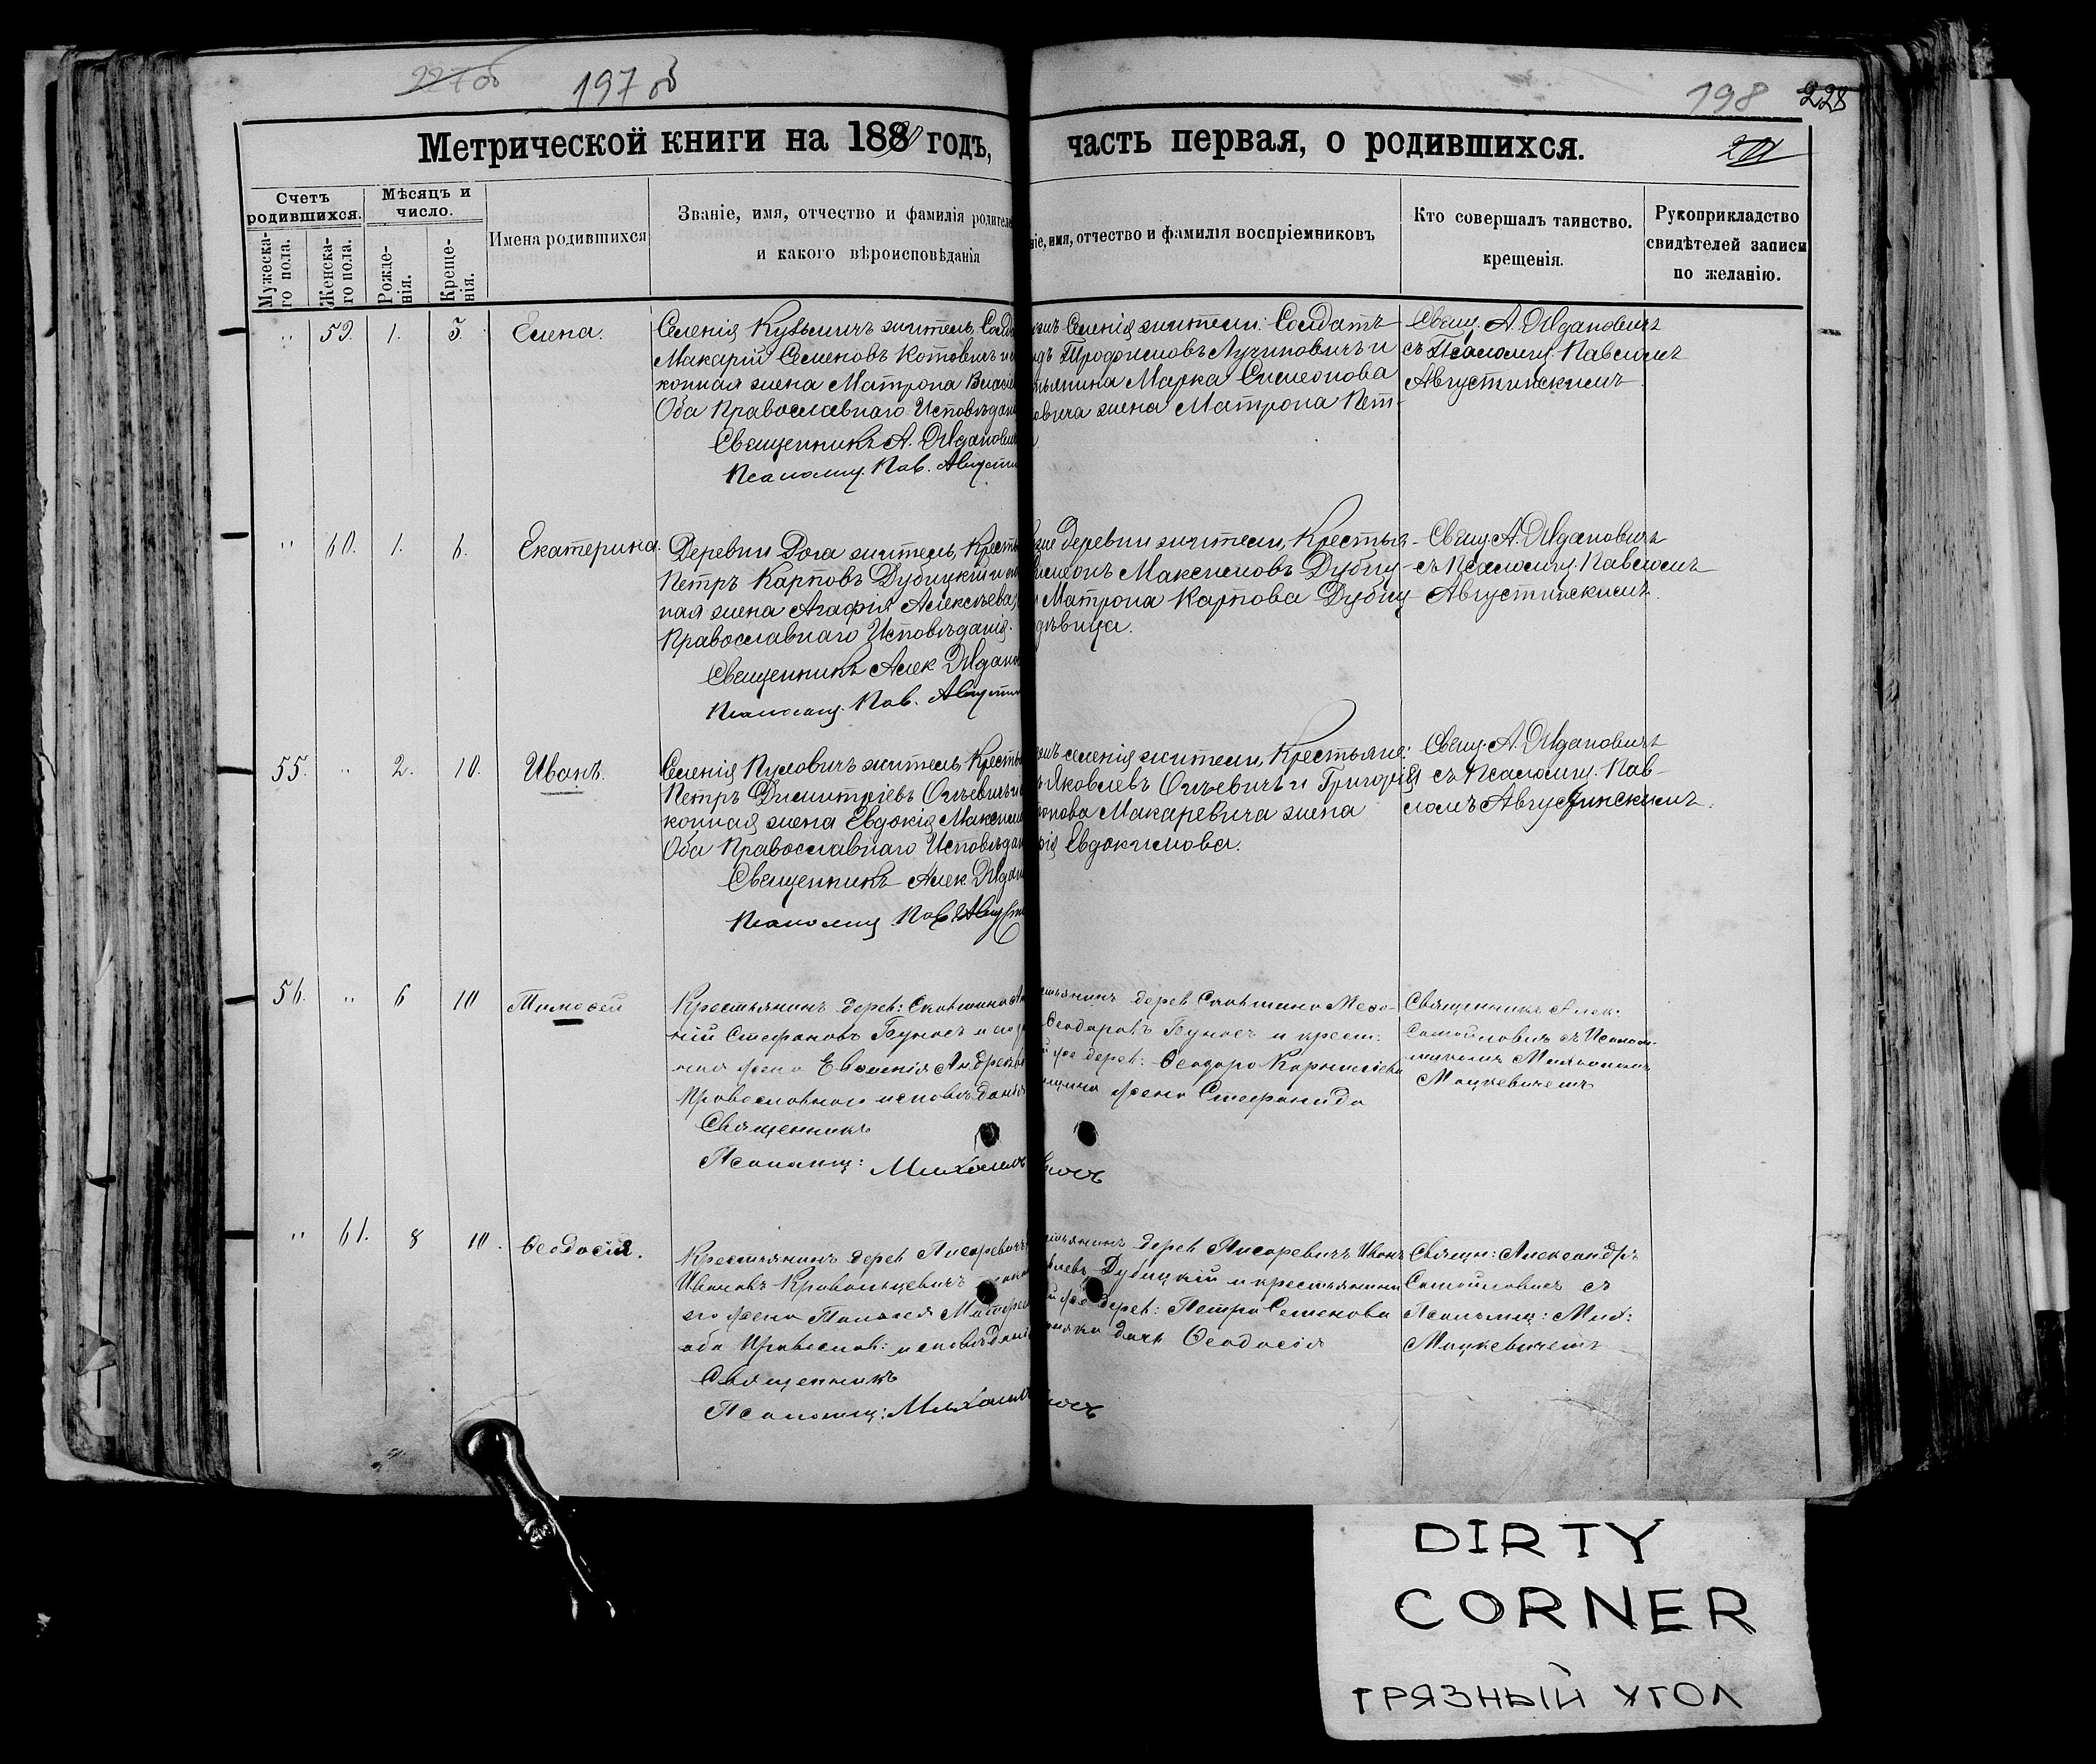 197 об
198
228
Метрической книги на 1890 годъ,
часть первая, о родившихся.
Счетъ родившихся.
Мѣсяцъ и число.
Мужеска-го пола.
Женска-го пола.
Рожде-нія.
Креще-нія.
Имена родившихся
Званіе, имя, отчество и фамилія родителе
и какого вѣроисповѣданія
ніе, имя, отчество и фамилія воспріемниковъ
Кто совершалъ таинство.
крещенія.
Рукоприкладство
свидѣтелей записи
по желанію.
" 59. 1. 5. Елена.
Селенія Кузьмичъ житель, Солда
Макарій Семеновъ Котовичъ и
конная жена Матрона Власі
Оба Православнаго Исповѣдан
Священникъ А. Ждановичъ
Псаломщ. Пав. Августи
Селенія жители: Солдатъ
Трофимовъ Лучиновичъ и
Марка Симеонова
жена Матрона Пет-
Свящ. А. Ждановичъ
съ Псаломщ. Павломъ
Августинскимъ
" 60. 1. 6. Екатерина.
Деревни Рога житель, Кресть
Петръ Карповъ Дубицкій и
ная жена Агафія Алексѣева,
Православнаго Исповѣданія.
Священникъ Алек Ждано
Псаломщ. Пав. Августи
деревни жители, Крестья-
Максимовъ Дубиц-
Матрона Карпова Дубиц-
дѣвица.
Свящ. А. Ждановичъ
съ Псаломщ. Павломъ
Августинскимъ.
55. " 2. 10. Иванъ.
Селенія Пуховичъ житель, Кресть
Петръ Димитріевъ Олѣевичъ и
конная жена Евдокія Максим
Оба Православнаго Исповѣдан
Священникъ Алек. Ждан
Псаломщ Пав. Авгус
селенія жители, Крестьяне:
Яковлевъ Олѣевичъ и Григорія
Макаревича жена
Евдокимова.
Свящ. А. Ждановичъ
съ Псаломщ. Пав-
ломъ Августинскимъ.
56. " 6 10 Тимофей
Крестьянинъ дерев:
ній Стефановъ Буносъ и
ная жена Евгенія Андрее
Православнаго исповѣданія
Священникъ
Псаломщ: Михаилъ
дерев
Ѳеодоровъ Буносъ и крест:
же дерев: Ѳеодора Корнилієва
жена Стефанида
Священникъ Алек.
Самойловичъ съ Псалом-
щикомъ Михаиломъ
Мацкевичемъ
" 61. 8 10. Ѳеодосія.
Крестьянинъ дерев Писаревичъ
Ивановъ
жена
оба Православ: исповѣдані
Священникъ
Псаломщ: Михаилъ
дерев Писаревичъ Иванъ
Дубицкій и крестьянина
же дерев: Петра Семенова
дочь Ѳеодосія
Священ: Александръ
Самойловичъ съ
Псаломщ: Мих:
Мацкевичемъ
DIRTY
CORNER
ГРЯЗНЫЙ УГОЛ